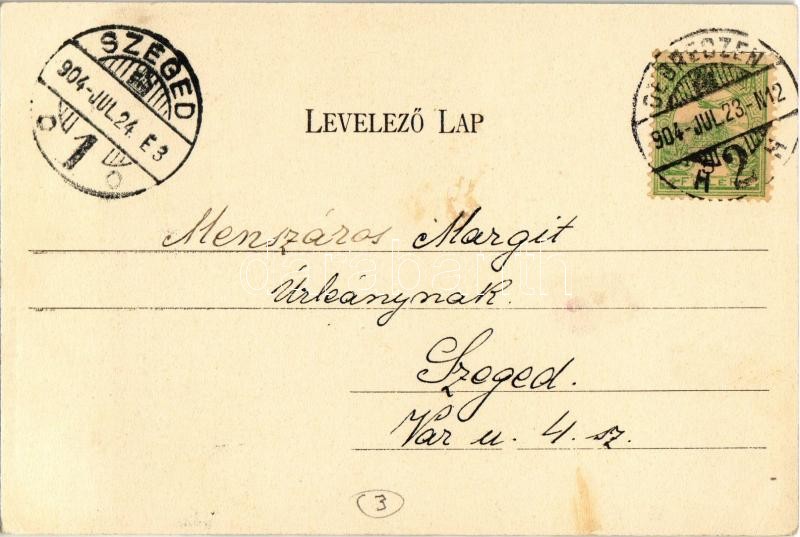 SZEGED
904-JUL.24. E 3
1
DEBRECZEN
904-JUL.23-N12
2
LEVELEZŐ LAP
Menszáros Margit
Úrleánynak.
Szeged.
Vár u. 4. sz.
3